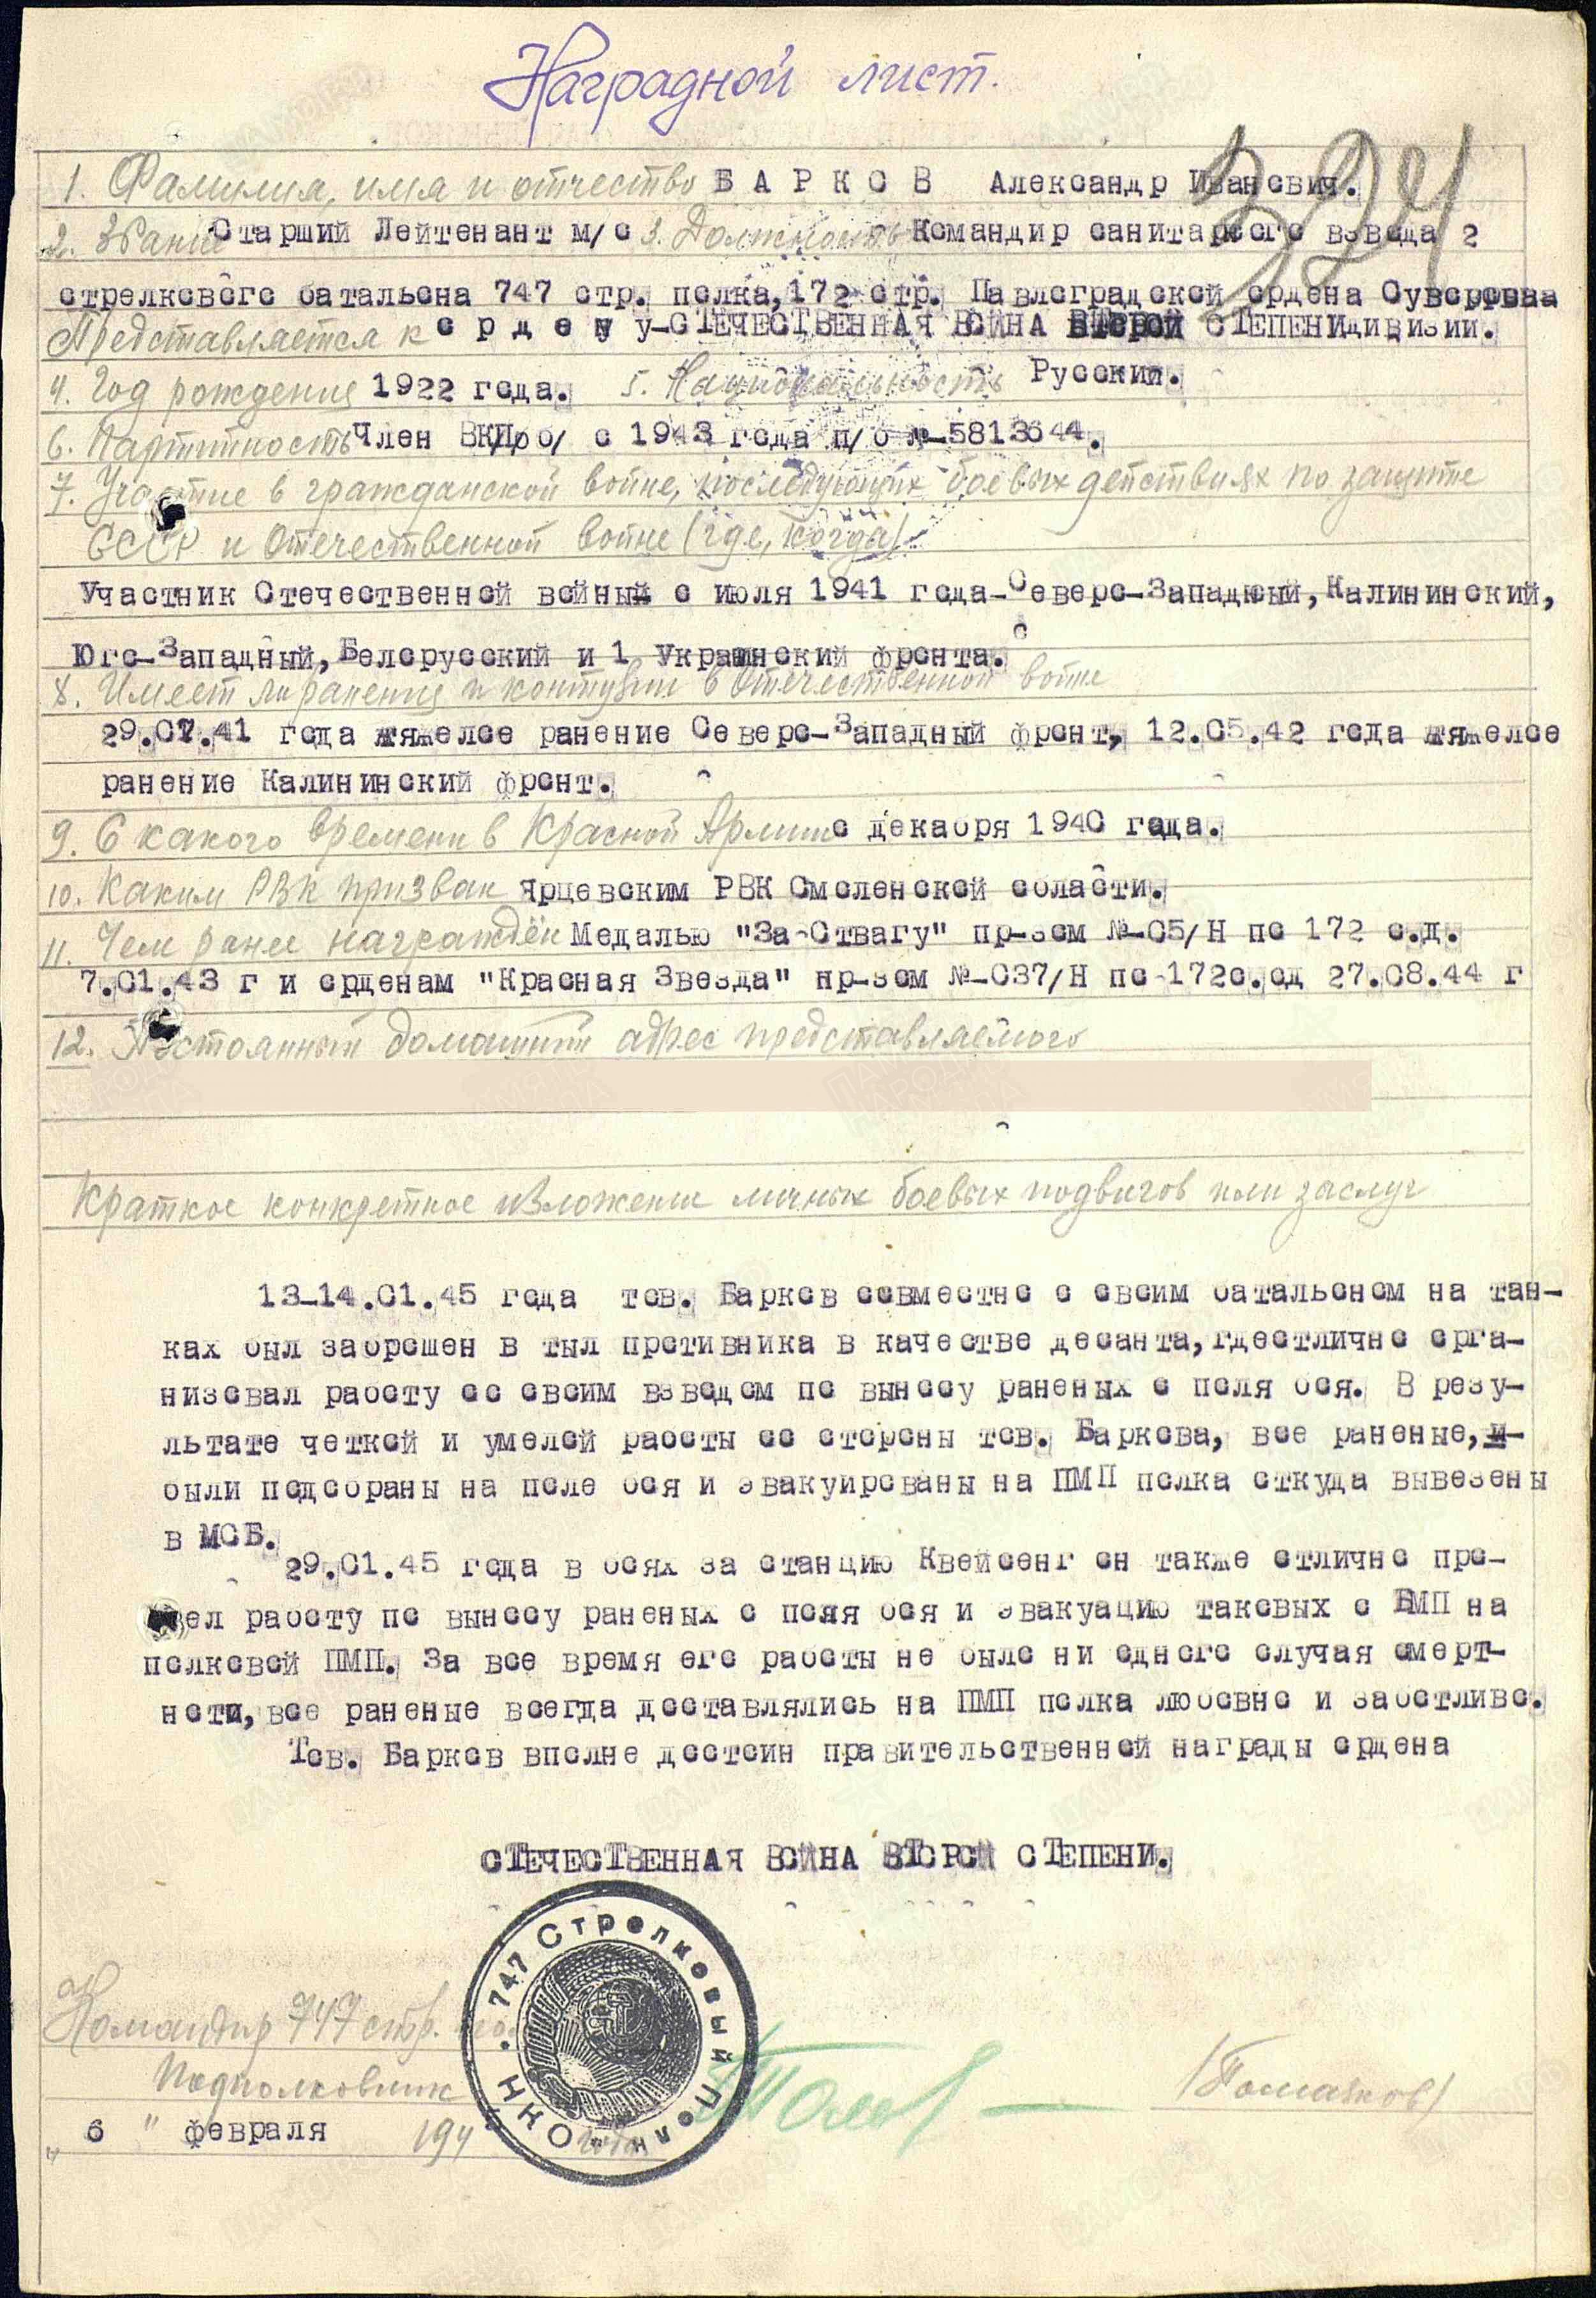 Наградной лист.
324
1. Фамилия, имя и отчество БАРКОВ Александр Иванович.
2. Звание Старший Лейтенант м/с 3. Должность Командир санитарного взвода 2
стрелкового батальона 747 стр. полка, 172 стр. Павлоградской ордена Суворова
Представляется к ордену-ОТЕЧЕСТВЕННАЯ ВОЙНА ВТОРОЙ СТЕПЕНИ дивизии.
4. Год рождения 1922 года. 5. Национальность Русский.
6. Партийность Член ВКП/б/ с 1943 года п/б №-5813644.
7. Участие в гражданской войне, последующих боевых действиях по защите
СССР и Отечественной войне (где, когда)
Участник Отечественной войны с июля 1941 года-Северо-Западный, Калининский,
Юго-Западный, Белорусский и 1 Украинский фронта.
8. Имеет ли ранения и контузии в Отечественной войне
29.07.41 года тяжелое ранение Северо-Западный фронт, 12.05.42 года тяжелое
ранение Калининский фронт.
9. С какого времени в Красной Армии с декабря 1940 года.
10. Каким РВК призван Ярцевским РВК Смоленской области.
11. Чем ранее награждён Медалью "За Отвагу" пр-зом №-05/Н по 172 с.д.
7.01.43 г и орденам "Красная Звезда" пр-зом №-037/Н по 172с.сд 27.08.44 г
12. Постоянный домашний адрес представляемого
Краткое конкретное изложение личных боевых подвигов или заслуг
13-14.01.45 года тов. Барков совместно с своим батальоном на тан-
ках был заброшен в тыл противника в качестве десанта, где отлично орга-
низовал работу со своим взводом по выносу раненых с поля боя. В резу-
льтате четкой и умелой работы со стороны тов. Баркова, все раненые,
были подобраны на поле боя и эвакуированы на ПМП полка откуда вывезены
в МСБ.
29.01.45 года в боях за станцию Квейсенг он также отлично про-
вел работу по выносу раненых с поля боя и эвакуацию таковых с БМП на
полковой ПМП. За все время его работы не было ни одного случая смерт-
ности, все раненые всегда доставлялись на ПМП полка любовно и заботливо.
Тов. Барков вполне достоин правительственной награды ордена
ОТЕЧЕСТВЕННАЯ ВОЙНА ВТОРОЙ СТЕПЕНИ.
747 Стрелковый Полк НКО
Командир 747 стр.
Подполковник
/Томашков/
„ 6 " февраля 194 года